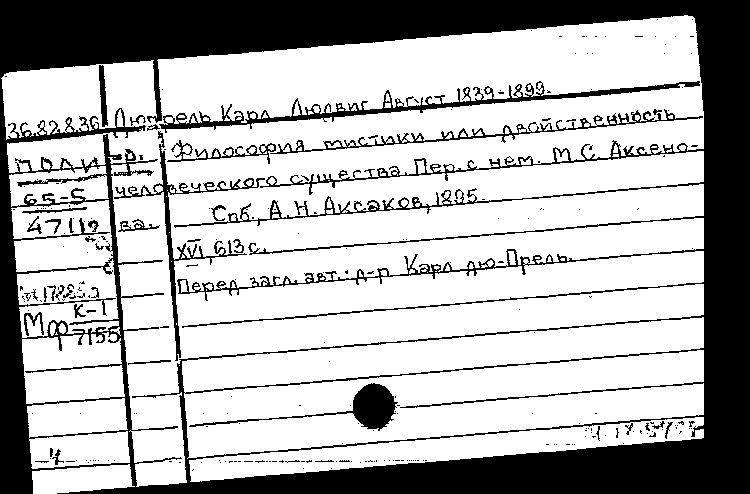 36.82.8.36 Дюпрель, Карл Людвиг Август 1839-1899.
ПОЛИ -р. Философия мистики или двойственность
65-5 человеческого существа. Пер. с нем. М.С. Аксено-
47119 ва. Спб., А.Н. Аксаков, 1895.
XVI, 613 с.
Перед загл. авт.: д-р Карл дю-Прель.
Мф К-1
7155
4